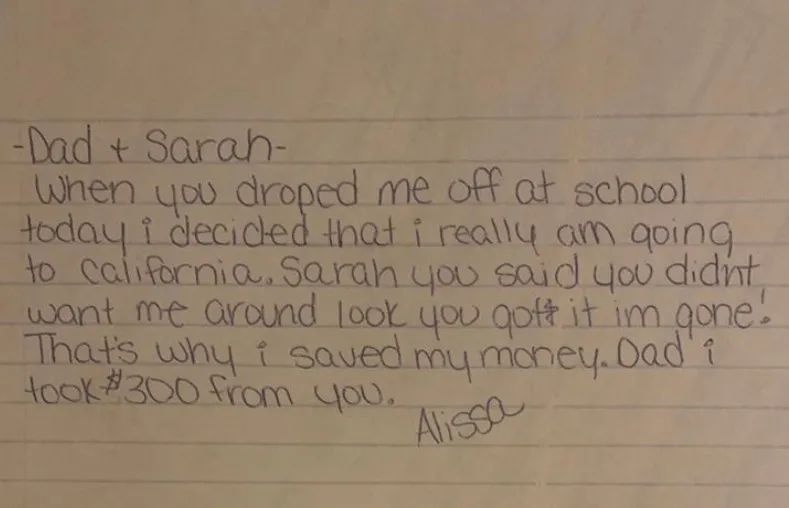 -Dad + Sarah-
When you droped me off at school
today i decided that i really am going
to california. Sarah you said you didnt
want me around look you got it im gone!
That's why i saved my money. Dad i
took $300 from you.
Alissa